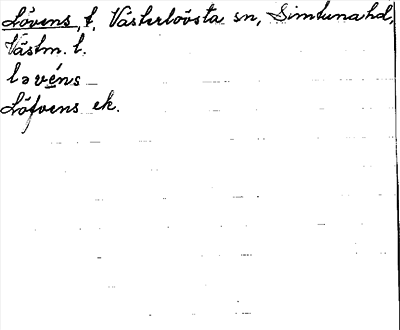 Lövens, t, Västerlövsta sn, Simtuna hd,
Västm. l.
ləvéns
Löfvens ek.